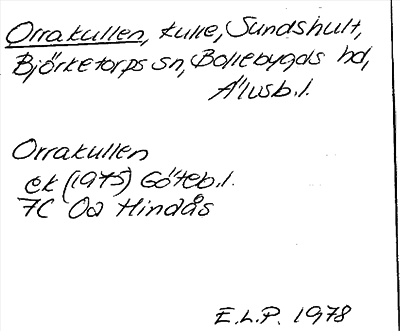 Orrakullen, kulle, Sundshult,
Björketorps sn, Bollebygds hd,
Älvsb.l.
Orrakullen
ek (1975) Göteb.l.
7C 0a Hindås
E.L.P. 1978